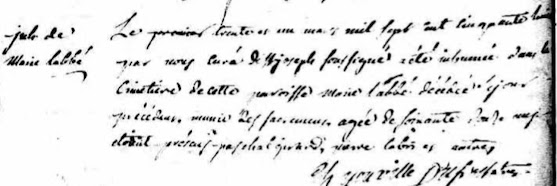 sep. de
Marie Labbé
Le trente et un mars mil sept cent cinquante huit
par nous curé de St joseph soussigné a été inhumée dans le
Cimetière de cette paroisse Marie Labbé décédée le jour
précédent munie des sacremens agée de soixante douze ans
étoient présens paschal pierre Labbé et autres